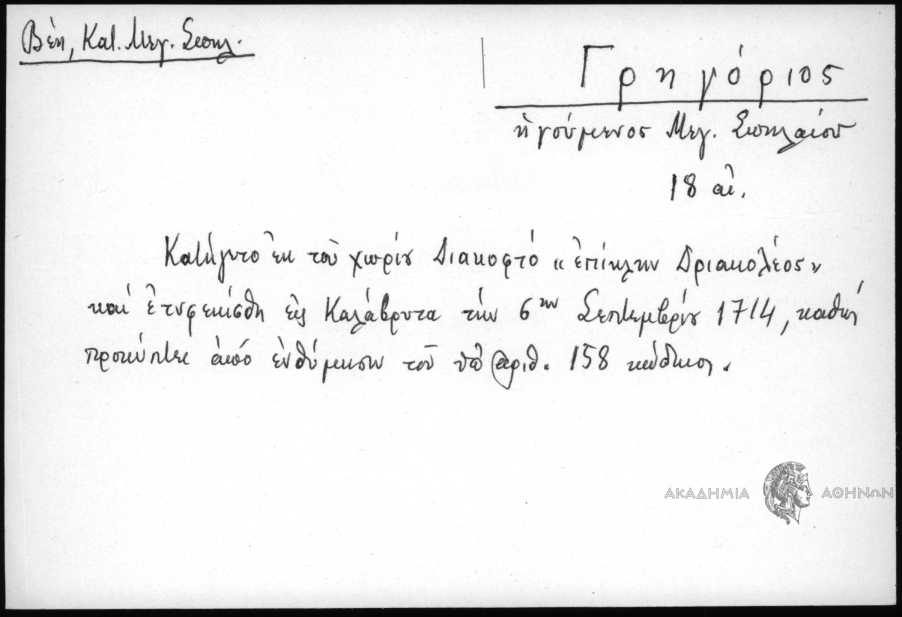 Βέη, Κατ. Μεγ. Σπηλ.
Γρηγόριος
ἡγούμενος Μεγ. Σπηλαίου
18 αἰ.
Κατήγετο ἐκ τοῦ χωρίου Διακοφτό «ἐπίκλην Δριακολέος»
καί ἐτυφεκίσθη εἰς Καλάβρυτα τήν 6ην Σεπτεμβρίου 1714, καθώς
προκύπτει ἀπό ἐνθύμησιν τοῦ ὑπ' ἀριθ. 158 κώδικος.
ΑΚΑΔΗΜΙΑ ΑΘΗΝΩΝ